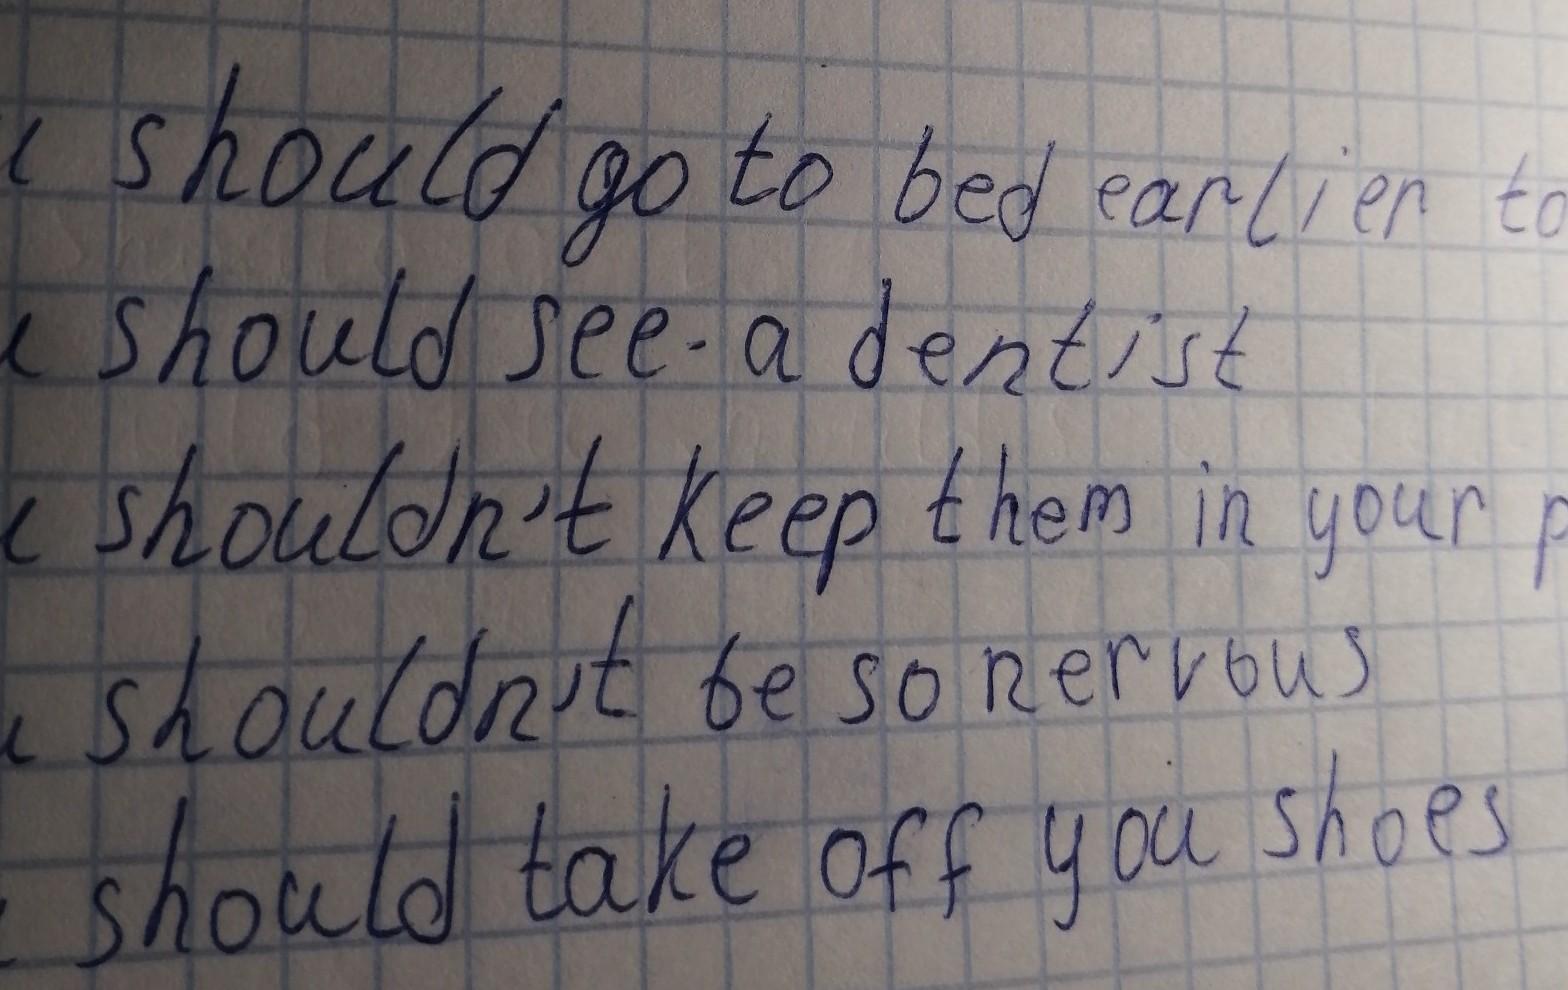 u should go to bed earlier to
u should see a dentist
u shouldn't keep them in your p
u shouldn't be so nervous
should take off you shoes